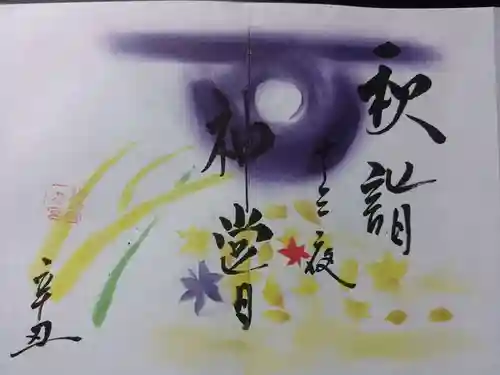 秋詣
十三夜
神嘗日
辛丑